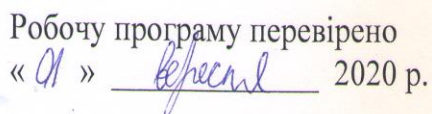 Робочу програму перевірено
« 01 » вересня 2020 р.